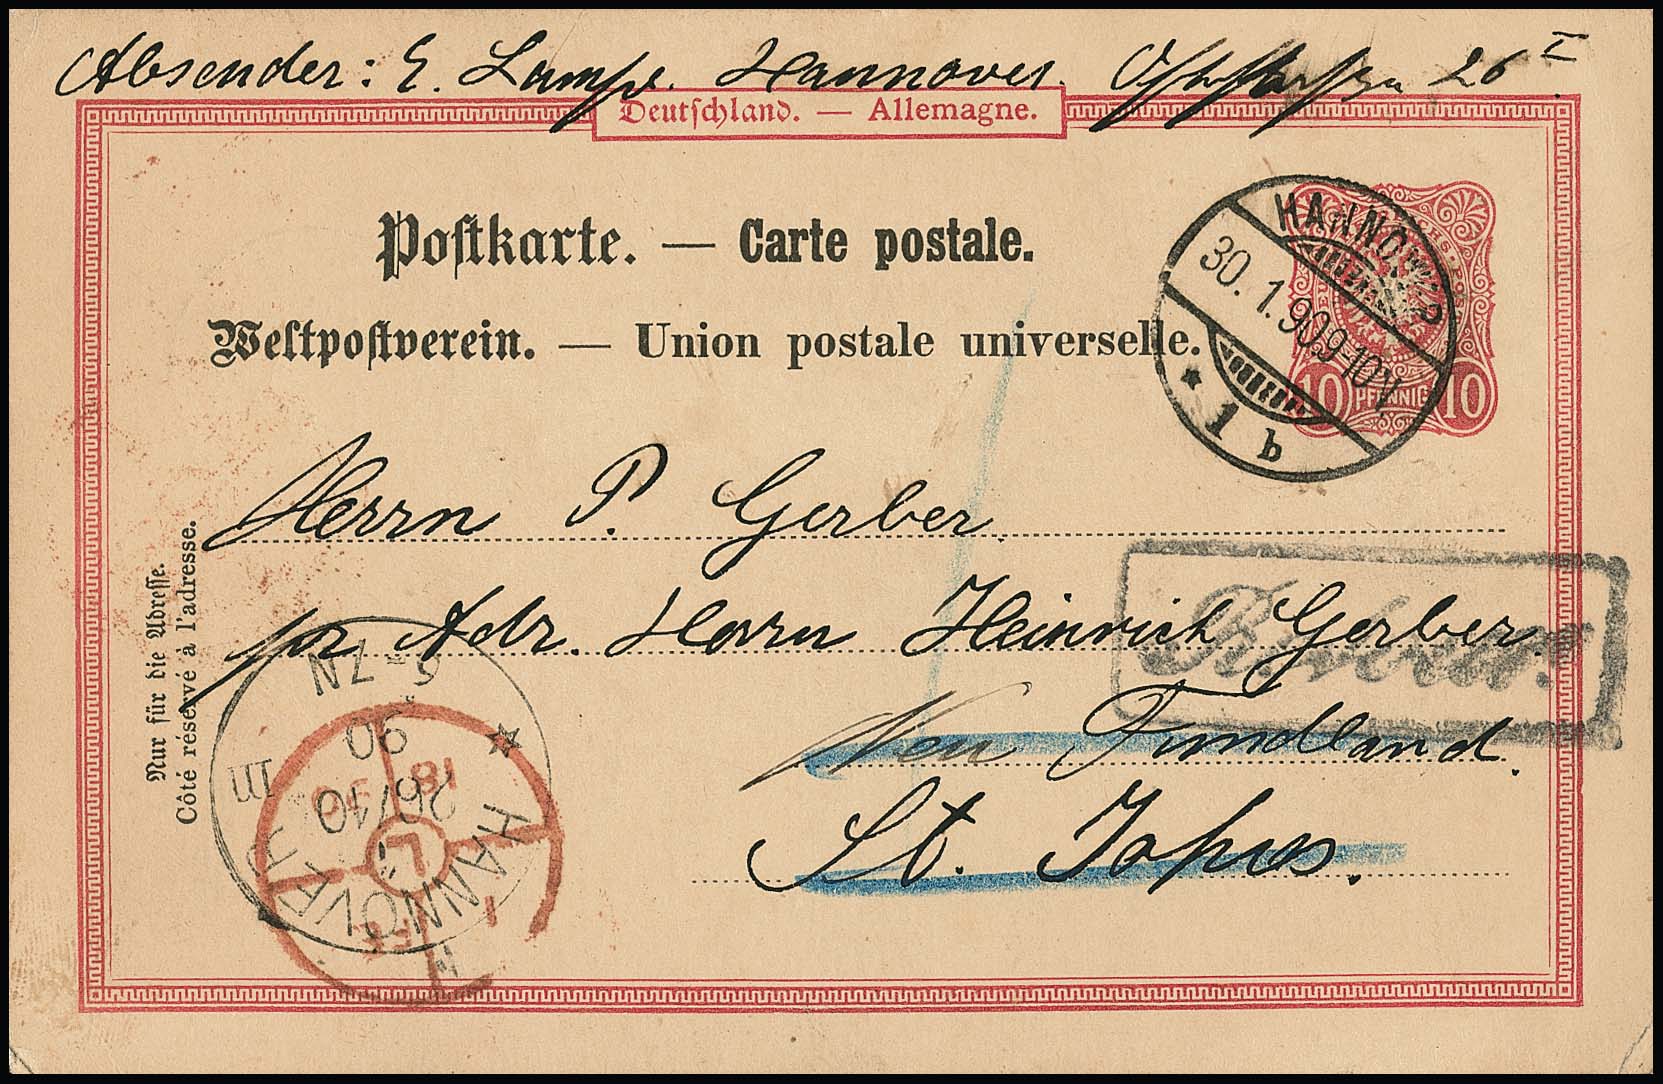 Absender: E. Lampe. Hannover. 26 I
Deutschland. — Allemagne.
Postkarte. — Carte postale.
Weltpostverein. — Union postale universelle.
HANNOVER
30.1.90.9-10N.
* 1 b
10 PFENNIG 10
Herrn P. Gerber.
pr Adr. Herrn Heinrich Gerber.
Neu Fundland.
St. Johns.
Nur für die Adresse.
Côté réservé à l'adresse.
HANNOVER
26/10
90
*
L
18
FE